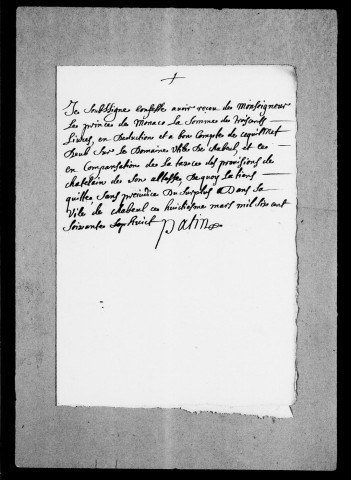 +
Je soubsigne confesse avoir receu de Monseigneur
le prince de Monaco la somme de trois cents
Livres, en deductions et a bon compte de ce qui m'est
deub sur le Domaine Ville de chabeul, et ce
en Compansation de la taxe des provisions de
chatelain de son altesse, de quoy le tiens
quitte, sans prejudice du surplus a Dans la
Ville de chabeul ce huictiesme mars mil six cent
soixante sept huict
patin